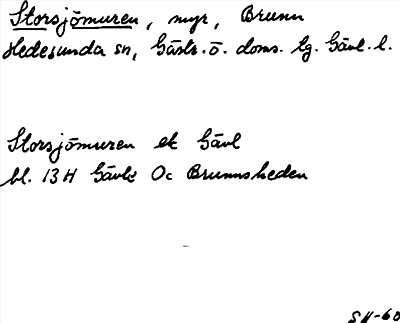 Storsjömuren, myr, Brunn
Hedesunda sn, Gästr. ö. doms. lg. Gävl. l.
Storsjömuren ek Gävl
bl. 13 H Gävle Oc Brunnsheden
SH-60